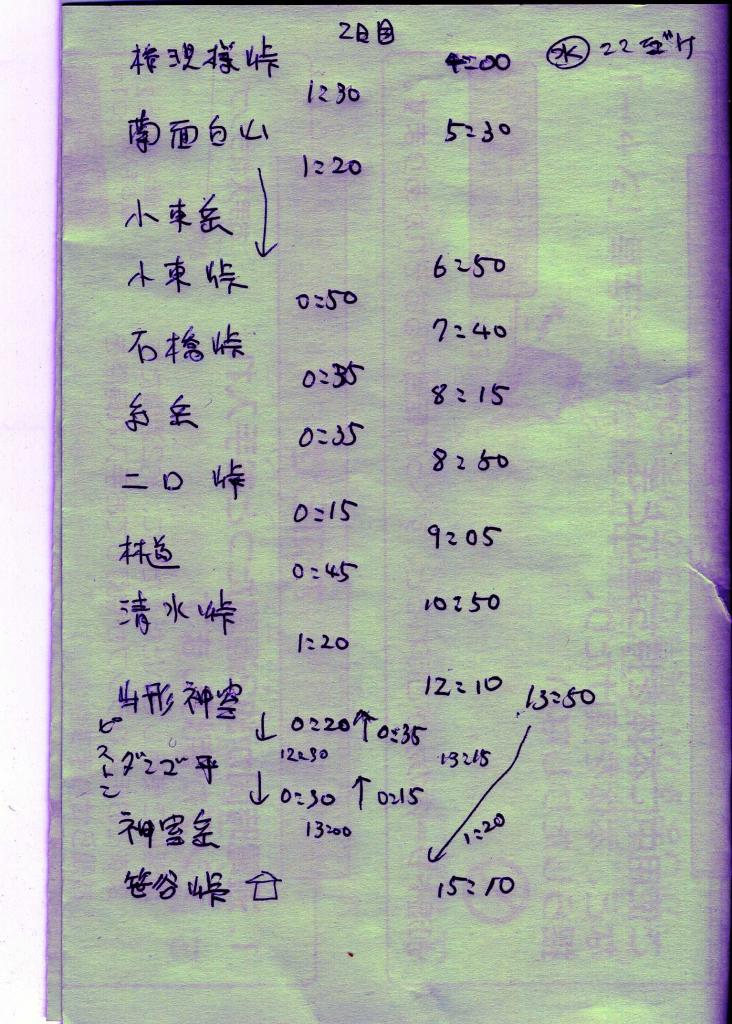 2日目
権現様峠 4:00 ㊌ 22至付
1:30
南面白山 5:30
1:20
↓
小東岳
小東峠 6:50
0:50
石橋峠 7:40
0:35
糸岳 8:15
0:35
二口峠 8:50
0:15
林道 9:05
0:45
清水峠 10:50
1:20
山形神室 12:10 13:50
ピストン
↓ 0:20 ↑ 0:35
ダンゴ平 12:30 13:15
↓ 0:30 ↑ 0:15
神室岳 13:00
1:20
笹谷峠 15:10